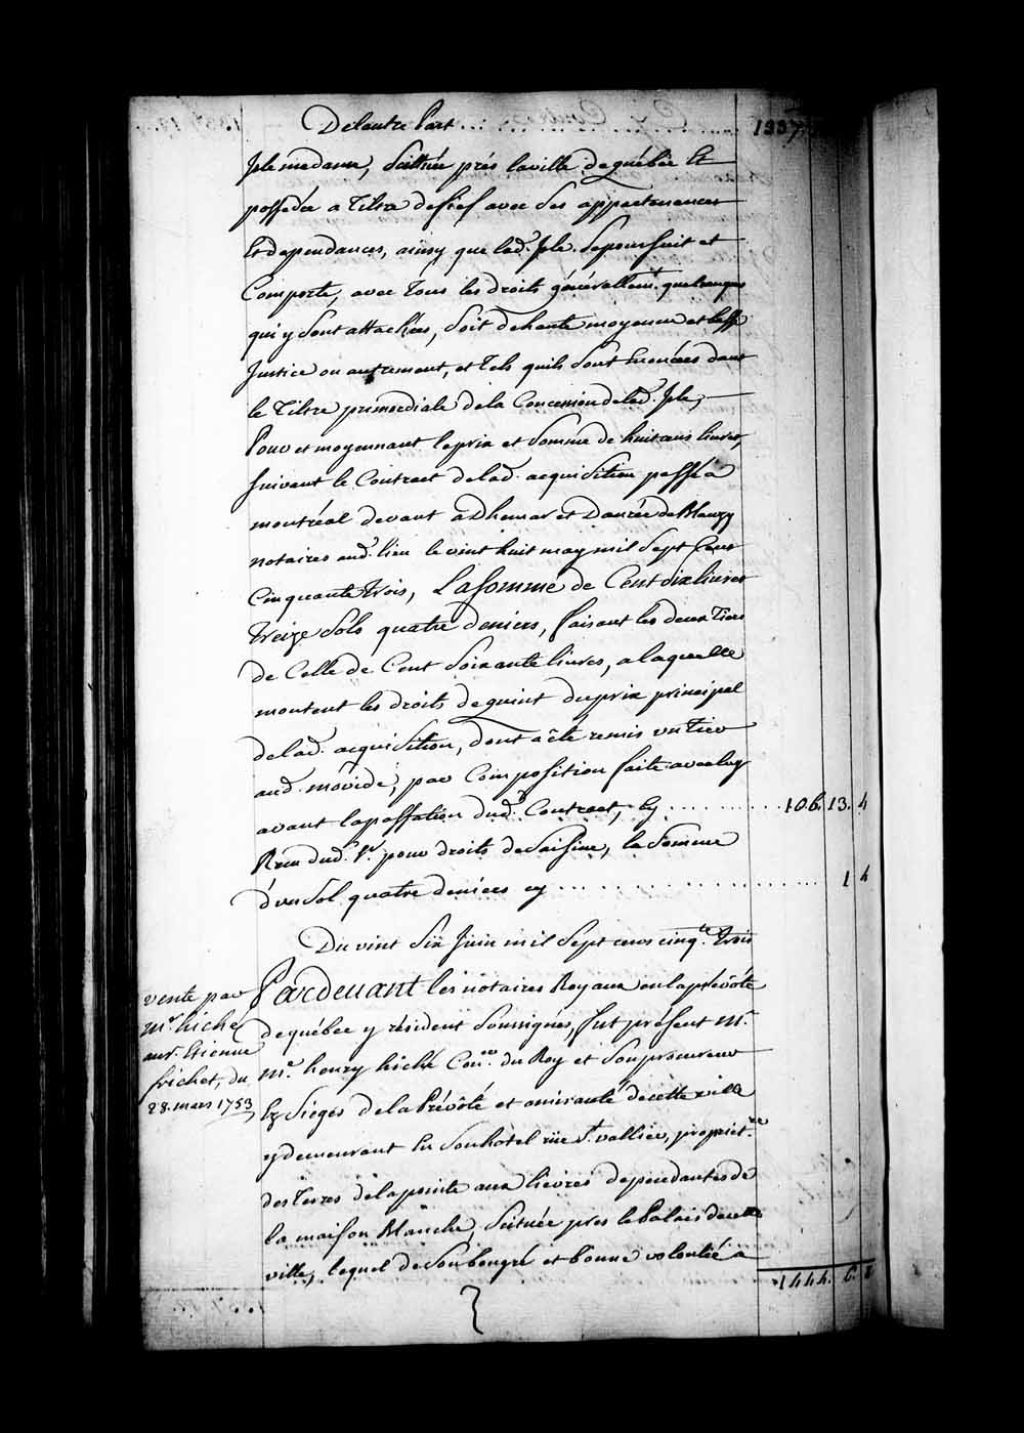 De lautre Part ................ 1337.
Isle madame, Scittuée prés la ville de québec Et
possedée a Tiltre de fief avec Ses appartenances
Et dependances, ainsy que lad.e Isle. Se poursuit et
Comporte, avec Tous les droits générallemt. quelconques
qui y Sont attachées, Soit de haute moyenne et basse
Justice ou autrement, et Tels quils Sont Enoncées dans
le Tiltre primordiale de la Concession de lad.e Isle,
Pour et moyennant le prix et Somme de huit cens livres,
Suivant le Contract de lad. acquisition passé a
montréal devant adhemar et Danrée de Blanzy
notaires aud. lieu le vint huit may mil Sept Cens
Cinquante Trois, La Somme de Cent Six livres
Treize Sols quatre deniers, faisant les deux Tiers
de Celle de Cent Soixante livres, a laquelle
montent les droits de quint du prix principal
de lad. acquisition, dont a été remis un Tiers
aud. par Composition faite avec luy
avant la passation dud. Contract, Cy .......... 106. 13. 4
Reçu dud. Sr. pour droits de Saisine, la Somme
d'un Sol quatre deniers cy ................ 1 4
Du vint Six Juin mil Sept cens cinq.te Trois
vente par
mr. hiché
au sr. Etienne
frichet, du
28. mars 1753
Pardevant les notaires Royaux en la prévôté
de québec y résident Soussignés, fut présent Mr.
Me. henry hiché Con.er du Roy et Son procureur
Es Sieges de la Prévôté et amirauté de cette ville
y demeurant En Son hôtel rüe St. vallier, propriet.re
des Terres de la pointe aux lievres dependantes de
la maison Blanche, Scituée prés le Palais de cette
ville, lequel de Son bon gré et bonne volontée a
1444. 6. 8